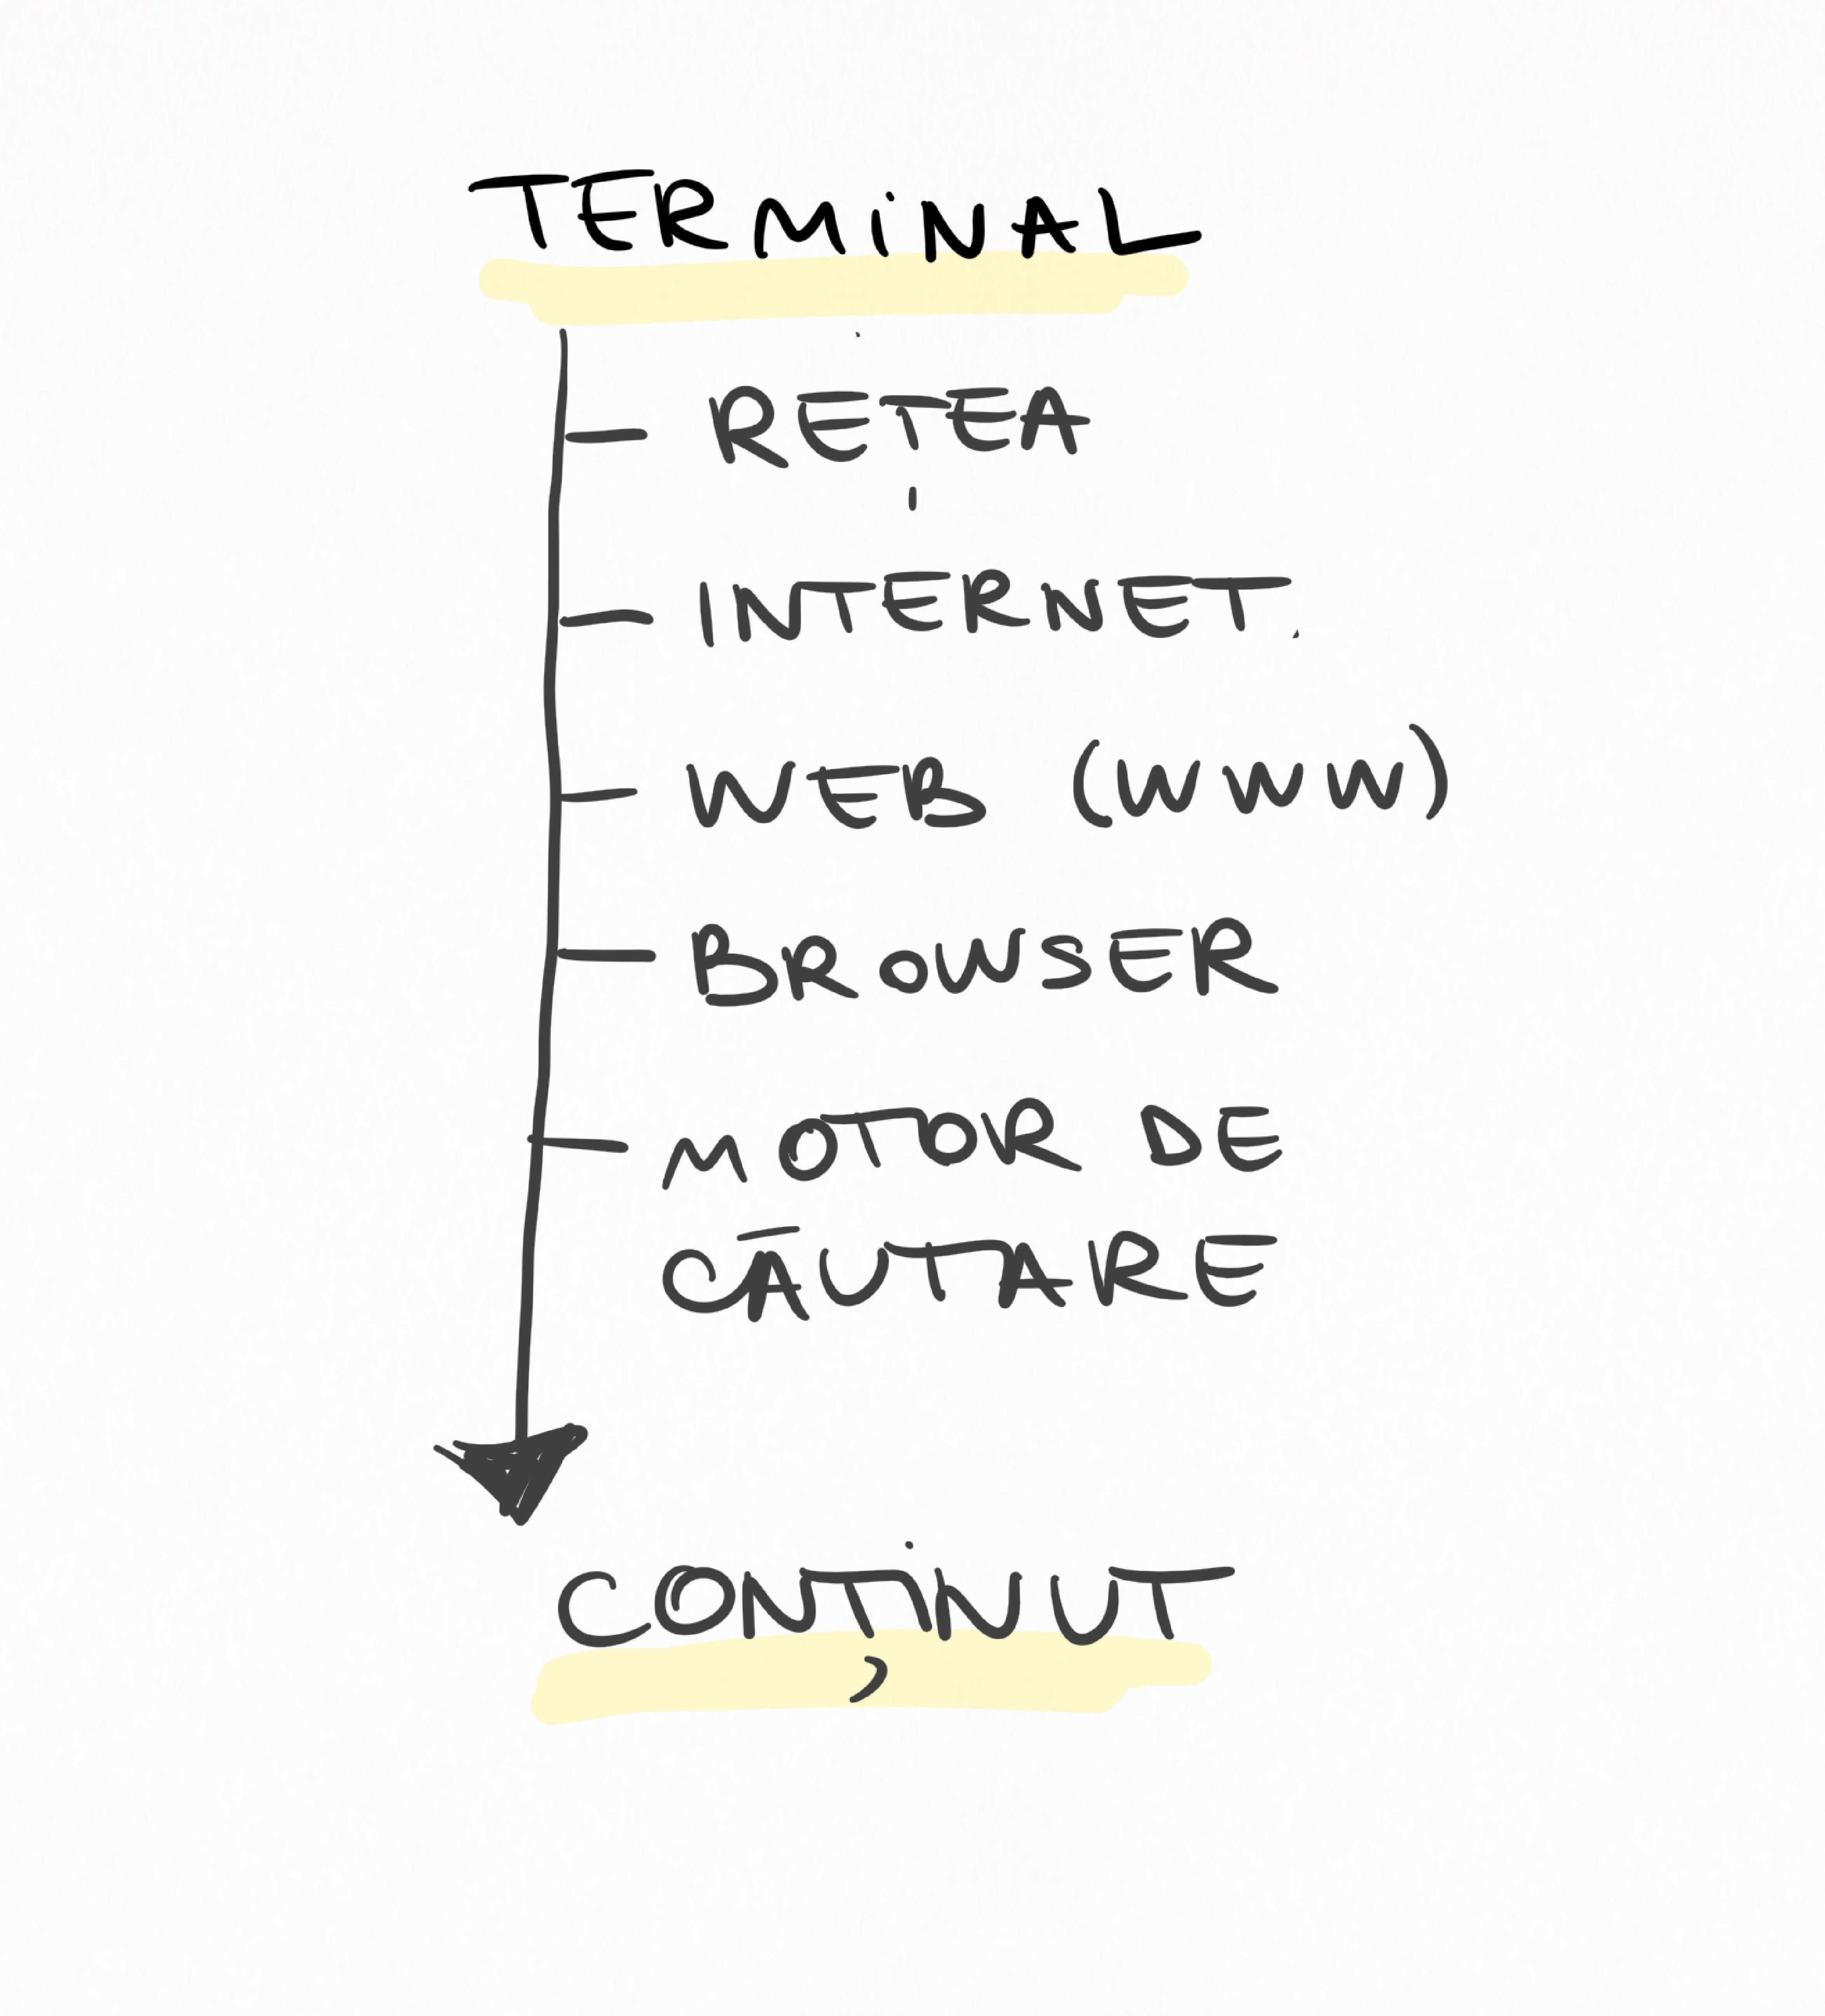 TERMINAL
REȚEA
INTERNET.
WEB (WWW)
BROWSER
MOTOR DE
CĂUTARE
CONȚINUT